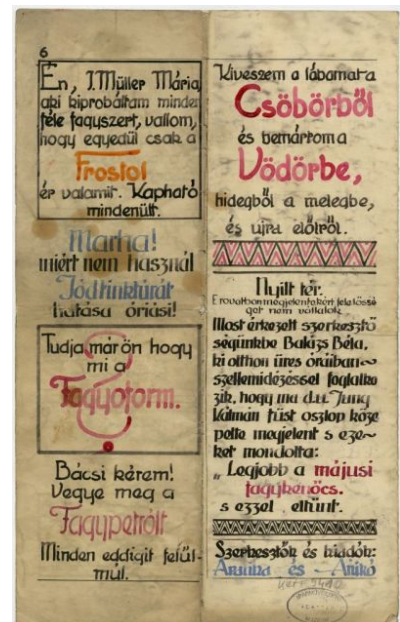 6
Én, J.Müller Mária,
aki kipróbáltam minden
féle fagyszert, vallom,
hogy egyedül csak a
Frostol
ér valamit. Kapható
mindenütt.
Martha!
miért nem használ
Jódtinktúrát
hatása óriási!
Tudja már ön hogy
mi a
Fagyoform.
?
Bácsi kérem!
Vegye meg a
Fagypetrólt
Minden eddigit felül-
múl.
Kiveszem a lábamat a
Csöbörből
és bemártom a
Vödörbe,
hidegből a melegbe,
és ujra előlről.
Nyilt tér.
E rovatban megjelentekért felelőssé
get nem vállalok.
Most érkezett szerkesztő
ségünkbe Bakizs Béla,
ki otthon üres óráiban
szellemidézéssel foglalko
zik, hogy ma d.u. Jung
Kálmán füst oszlop köze
pette megjelent s eze~
ket mondotta:
„Legjobb a májusi
fagykenőcs.
s ezzel eltünt.
Szerkesztők és kiadók:
és Anikó